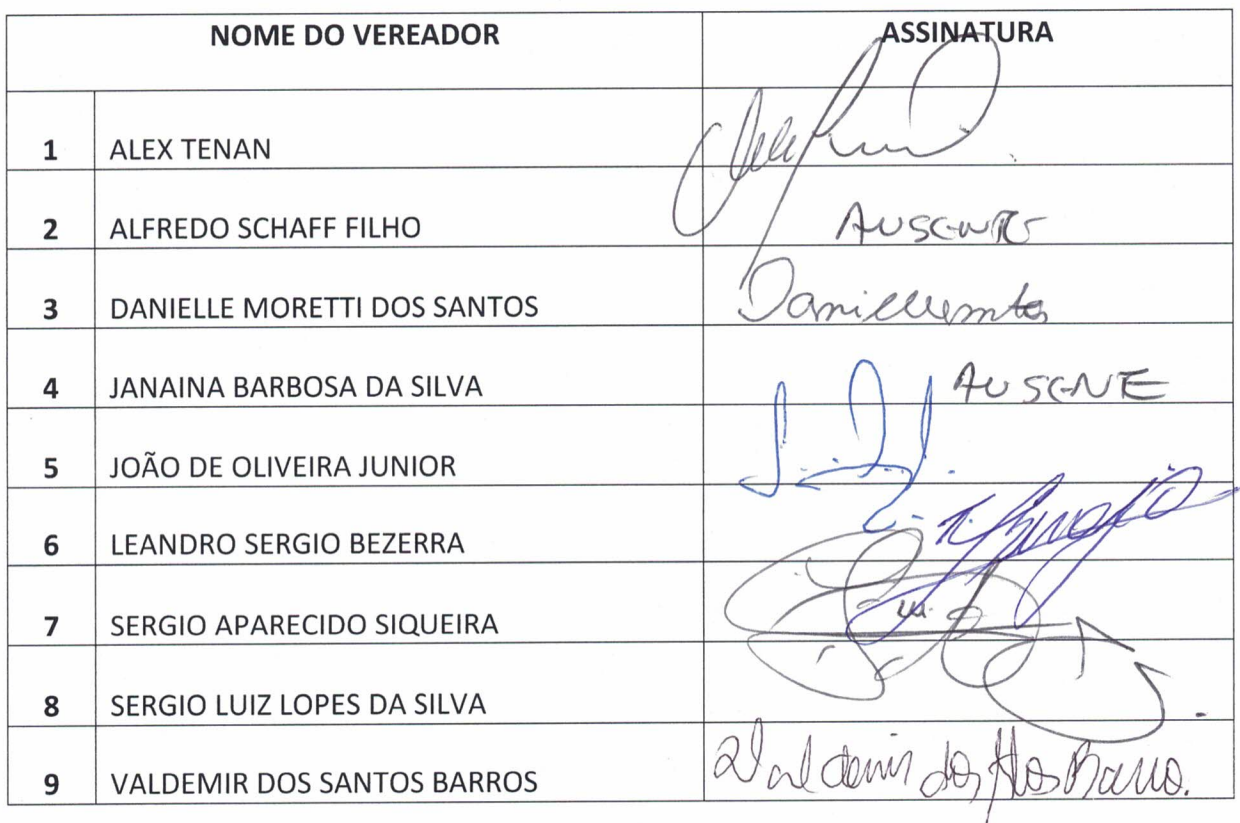 NOME DO VEREADOR ASSINATURA
1 ALEX TENAN
2 ALFREDO SCHAFF FILHO AUSENTE
3 DANIELLE MORETTI DOS SANTOS
4 JANAINA BARBOSA DA SILVA AUSENTE
5 JOÃO DE OLIVEIRA JUNIOR
6 LEANDRO SERGIO BEZERRA
7 SERGIO APARECIDO SIQUEIRA
8 SERGIO LUIZ LOPES DA SILVA
9 VALDEMIR DOS SANTOS BARROS Valdemir dos